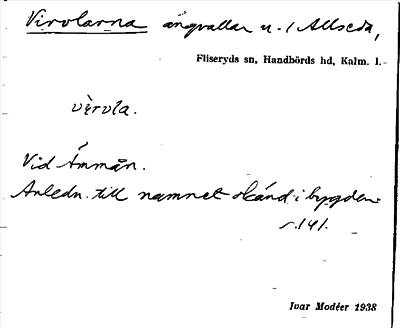 Virolarna ängvallar u. / Allseda,
Fliseryds sn, Handbörds hd, Kalm. l.
vèrvla.
Vid Ämmån.
Anledn. till namnet okänd i bygden.
s. 141.
Ivar Modéer 1938